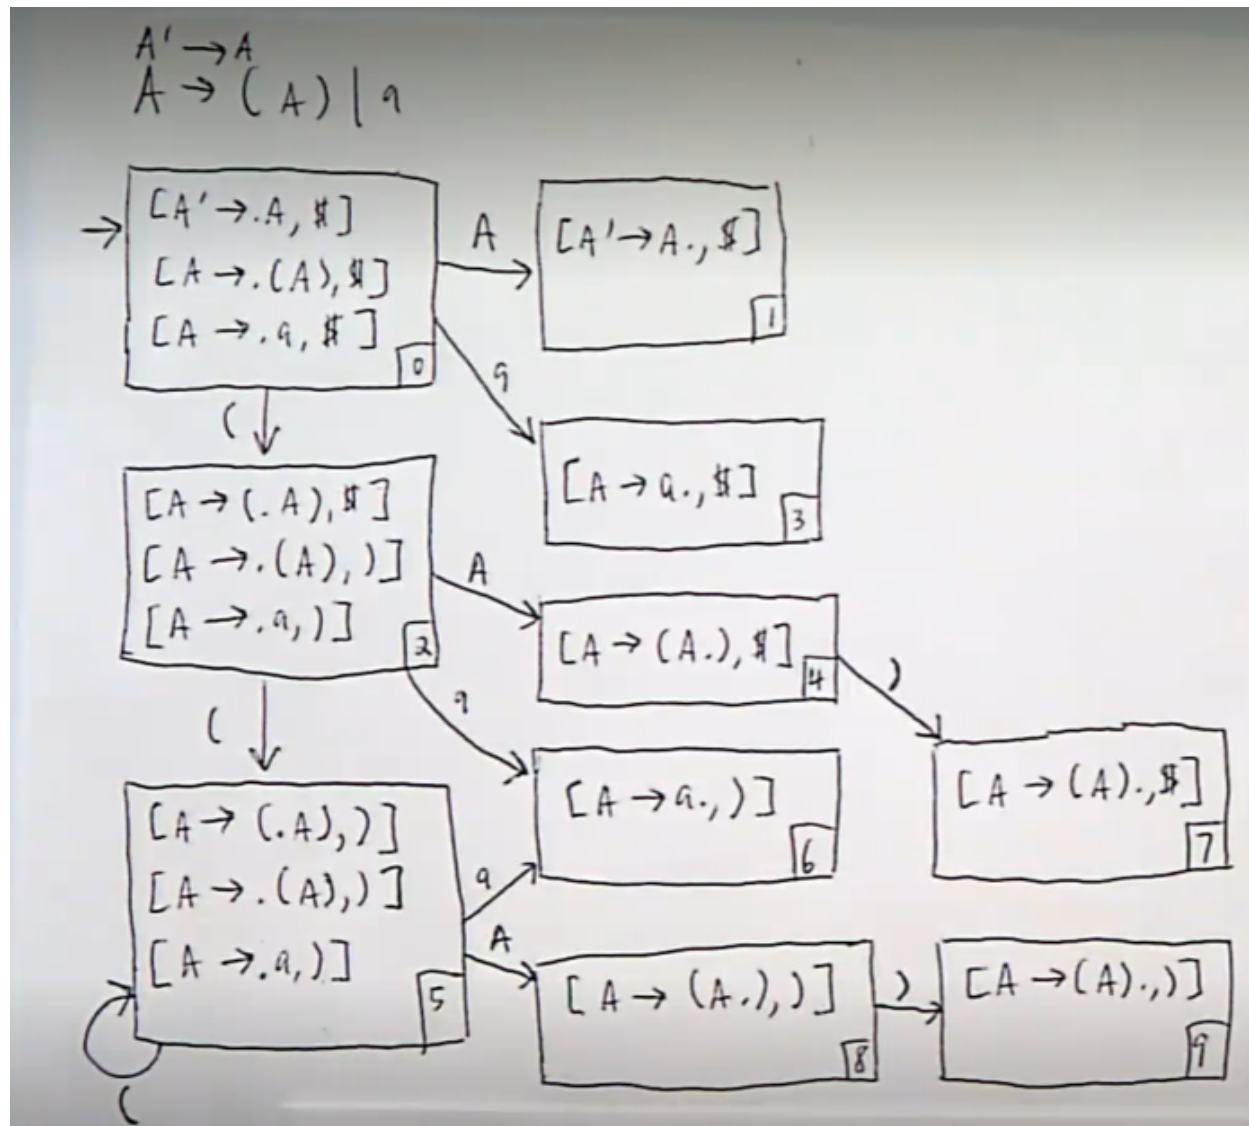 A' → A
A → (A) | a
[A' → .A, $]
[A → .(A), $]
[A → .a, $]
0
A
[A' → A., $]
1
a
(
[A → a., $]
3
[A → (.A), $]
[A → .(A), )]
[A → .a, )]
2
A
[A → (A.), $]
4
)
a
(
[A → a., )]
6
[A → (A)., $]
7
[A → (.A), )]
[A → .(A), )]
[A → .a, )]
5
a
A
(
[A → (A.), )]
8
)
[A → (A)., )]
9